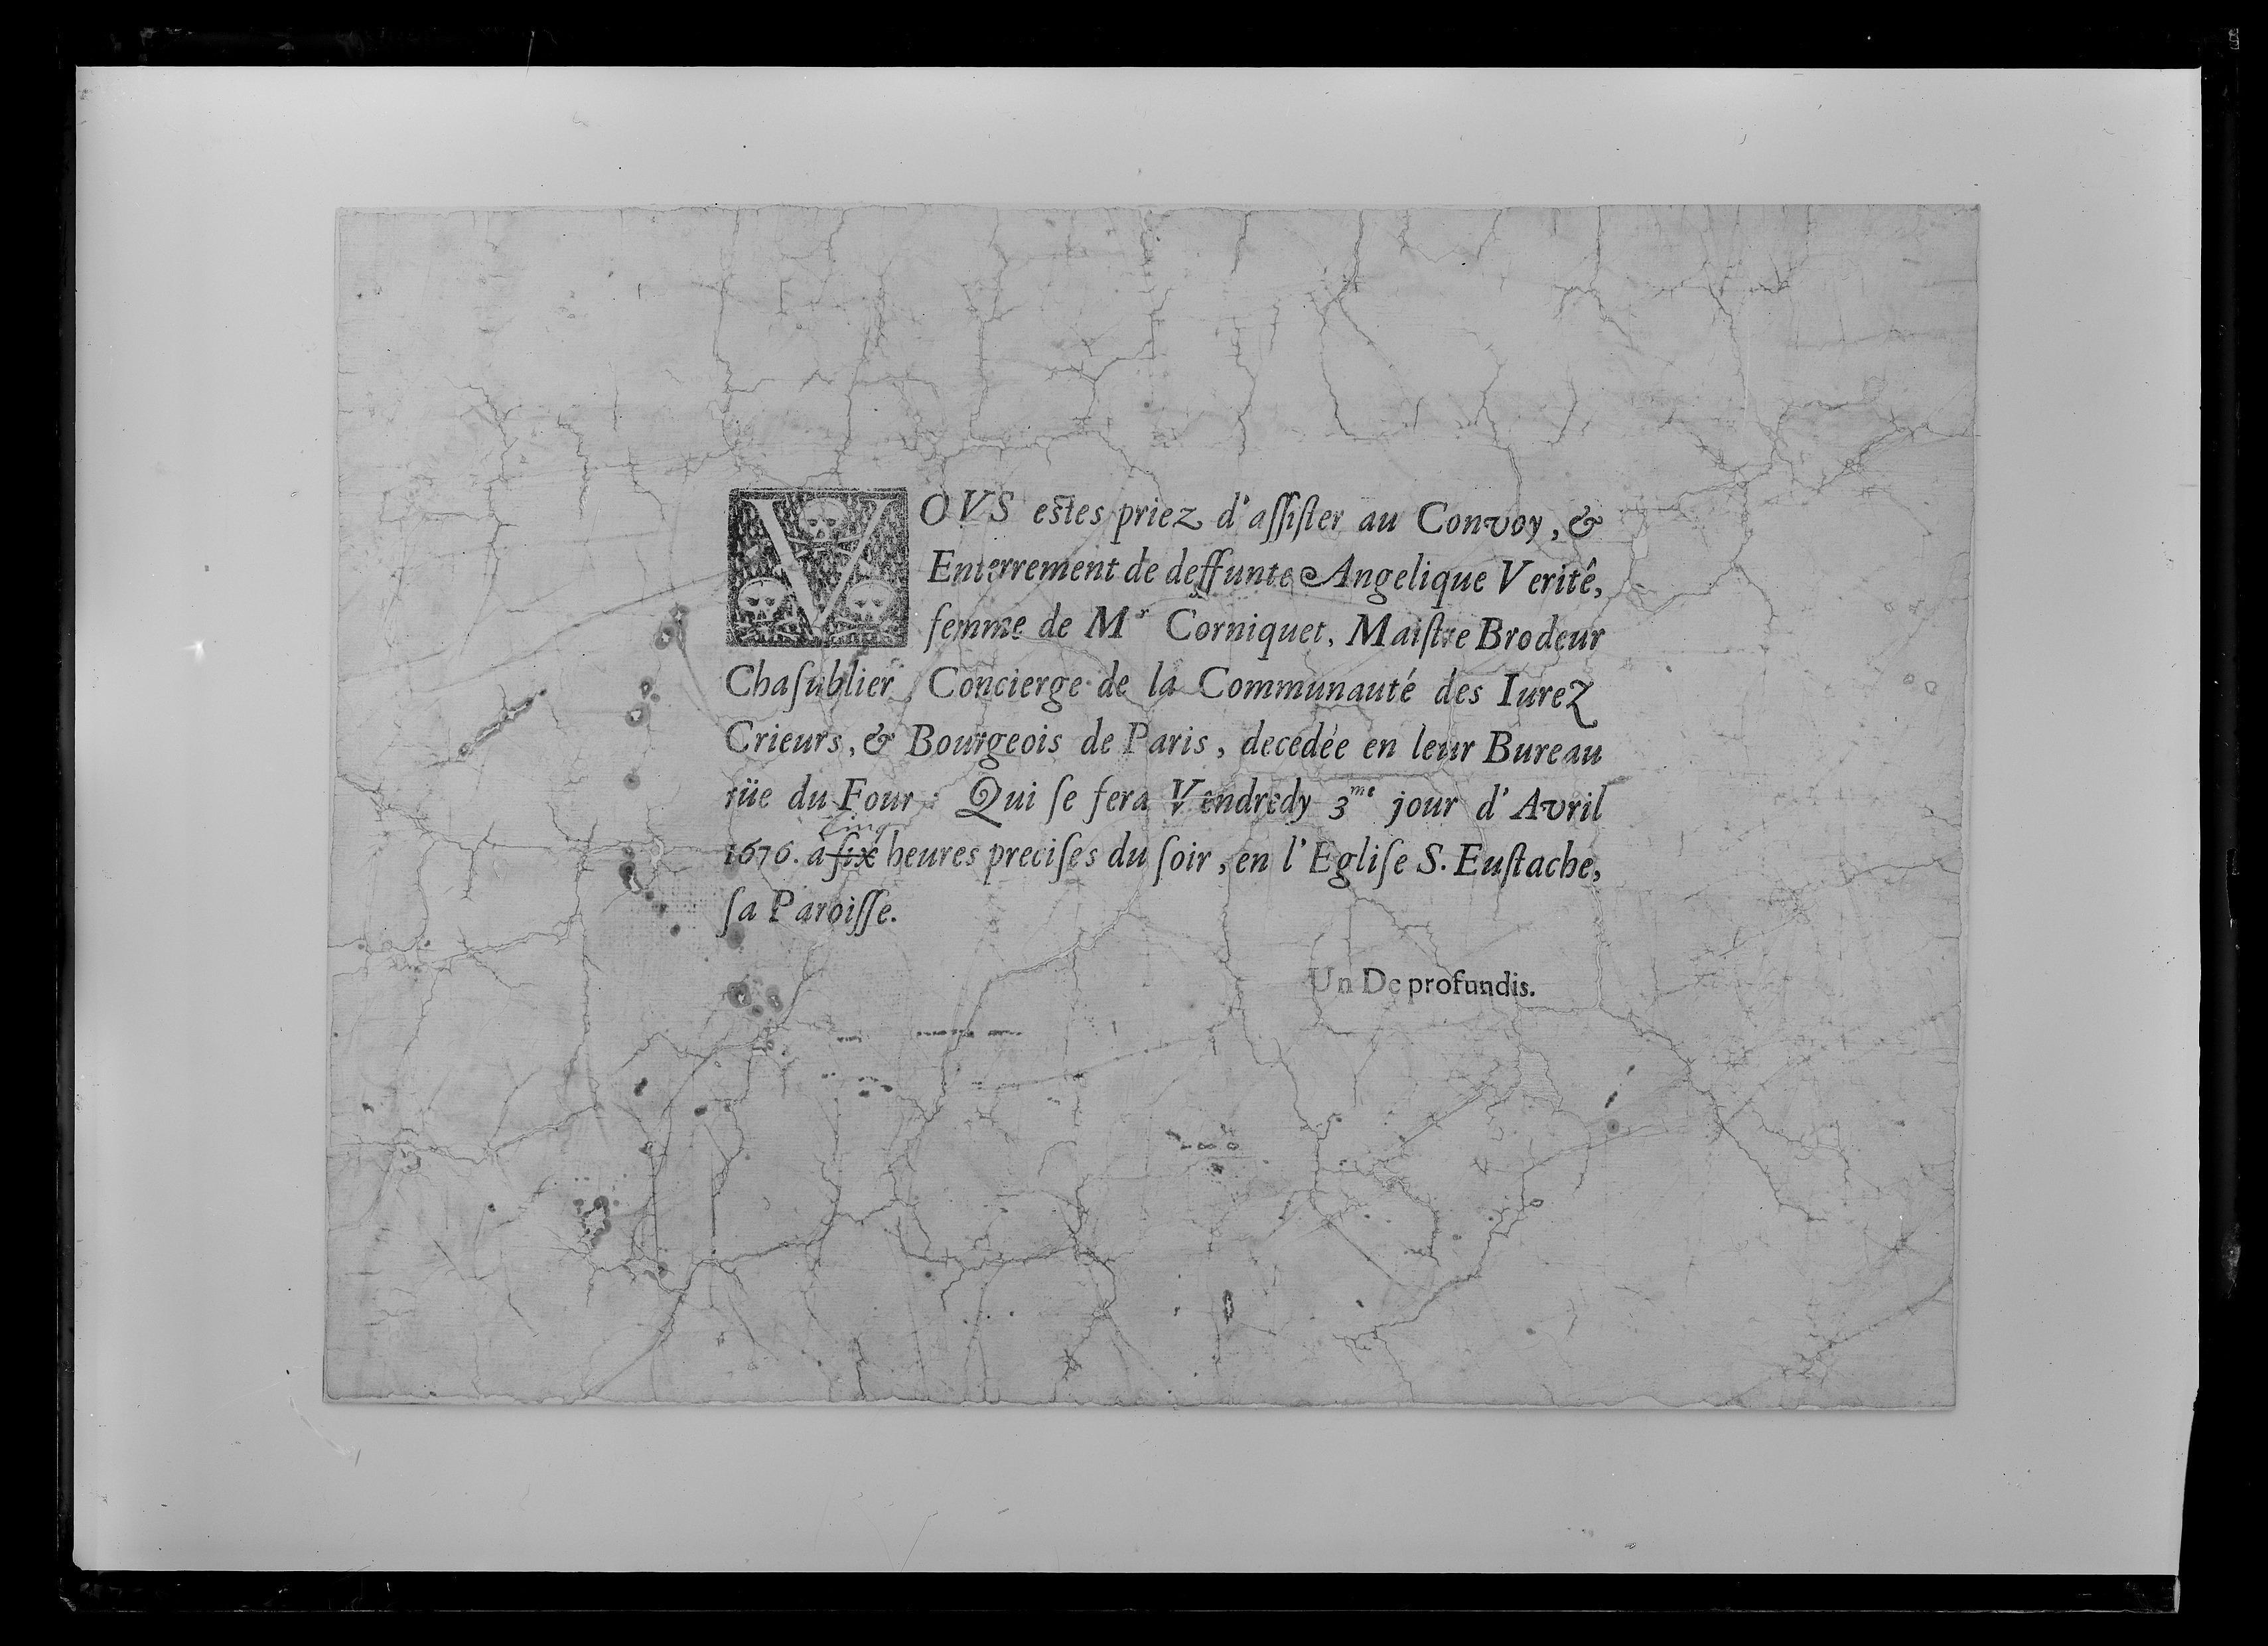 VOVS estes priez d'aſſiſter au Convoy, &
Enterrement de deffunte Angelique Verité,
femme de Mr Corniquet, Maiſtre Brodeur
Chaſublier, Concierge de la Communauté des Iurez
Crieurs, & Bourgeois de Paris, decedée en leur Bureau
rüe du Four : Qui ſe fera Vendredy 3me jour d'Avril
cinq
1676. à ſix heures preciſes du ſoir, en l'Egliſe S. Euſtache,
ſa Paroiſſe.
Un De profundis.